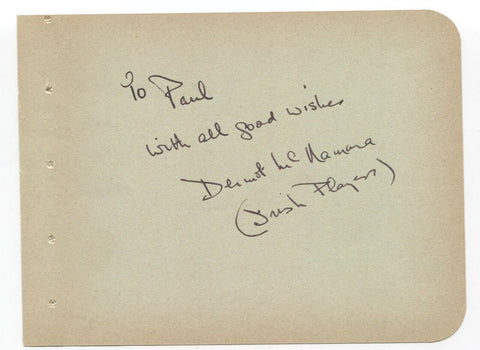 To Paul
with all good wishes
Dermot McNamara
(Irish Players)